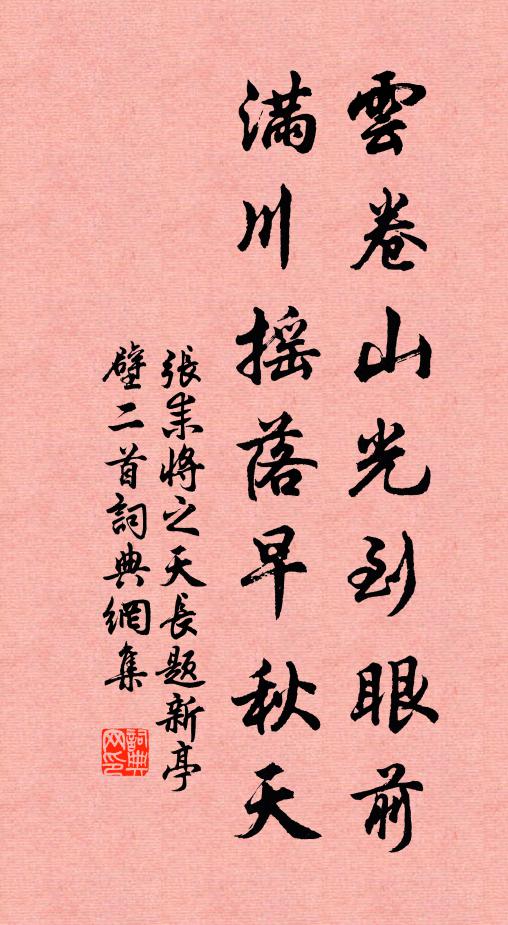 雲卷山光到眼前
滿川摇落早秋天
張耒將之天長题新亭
壁二首詞典網集
詞典网印